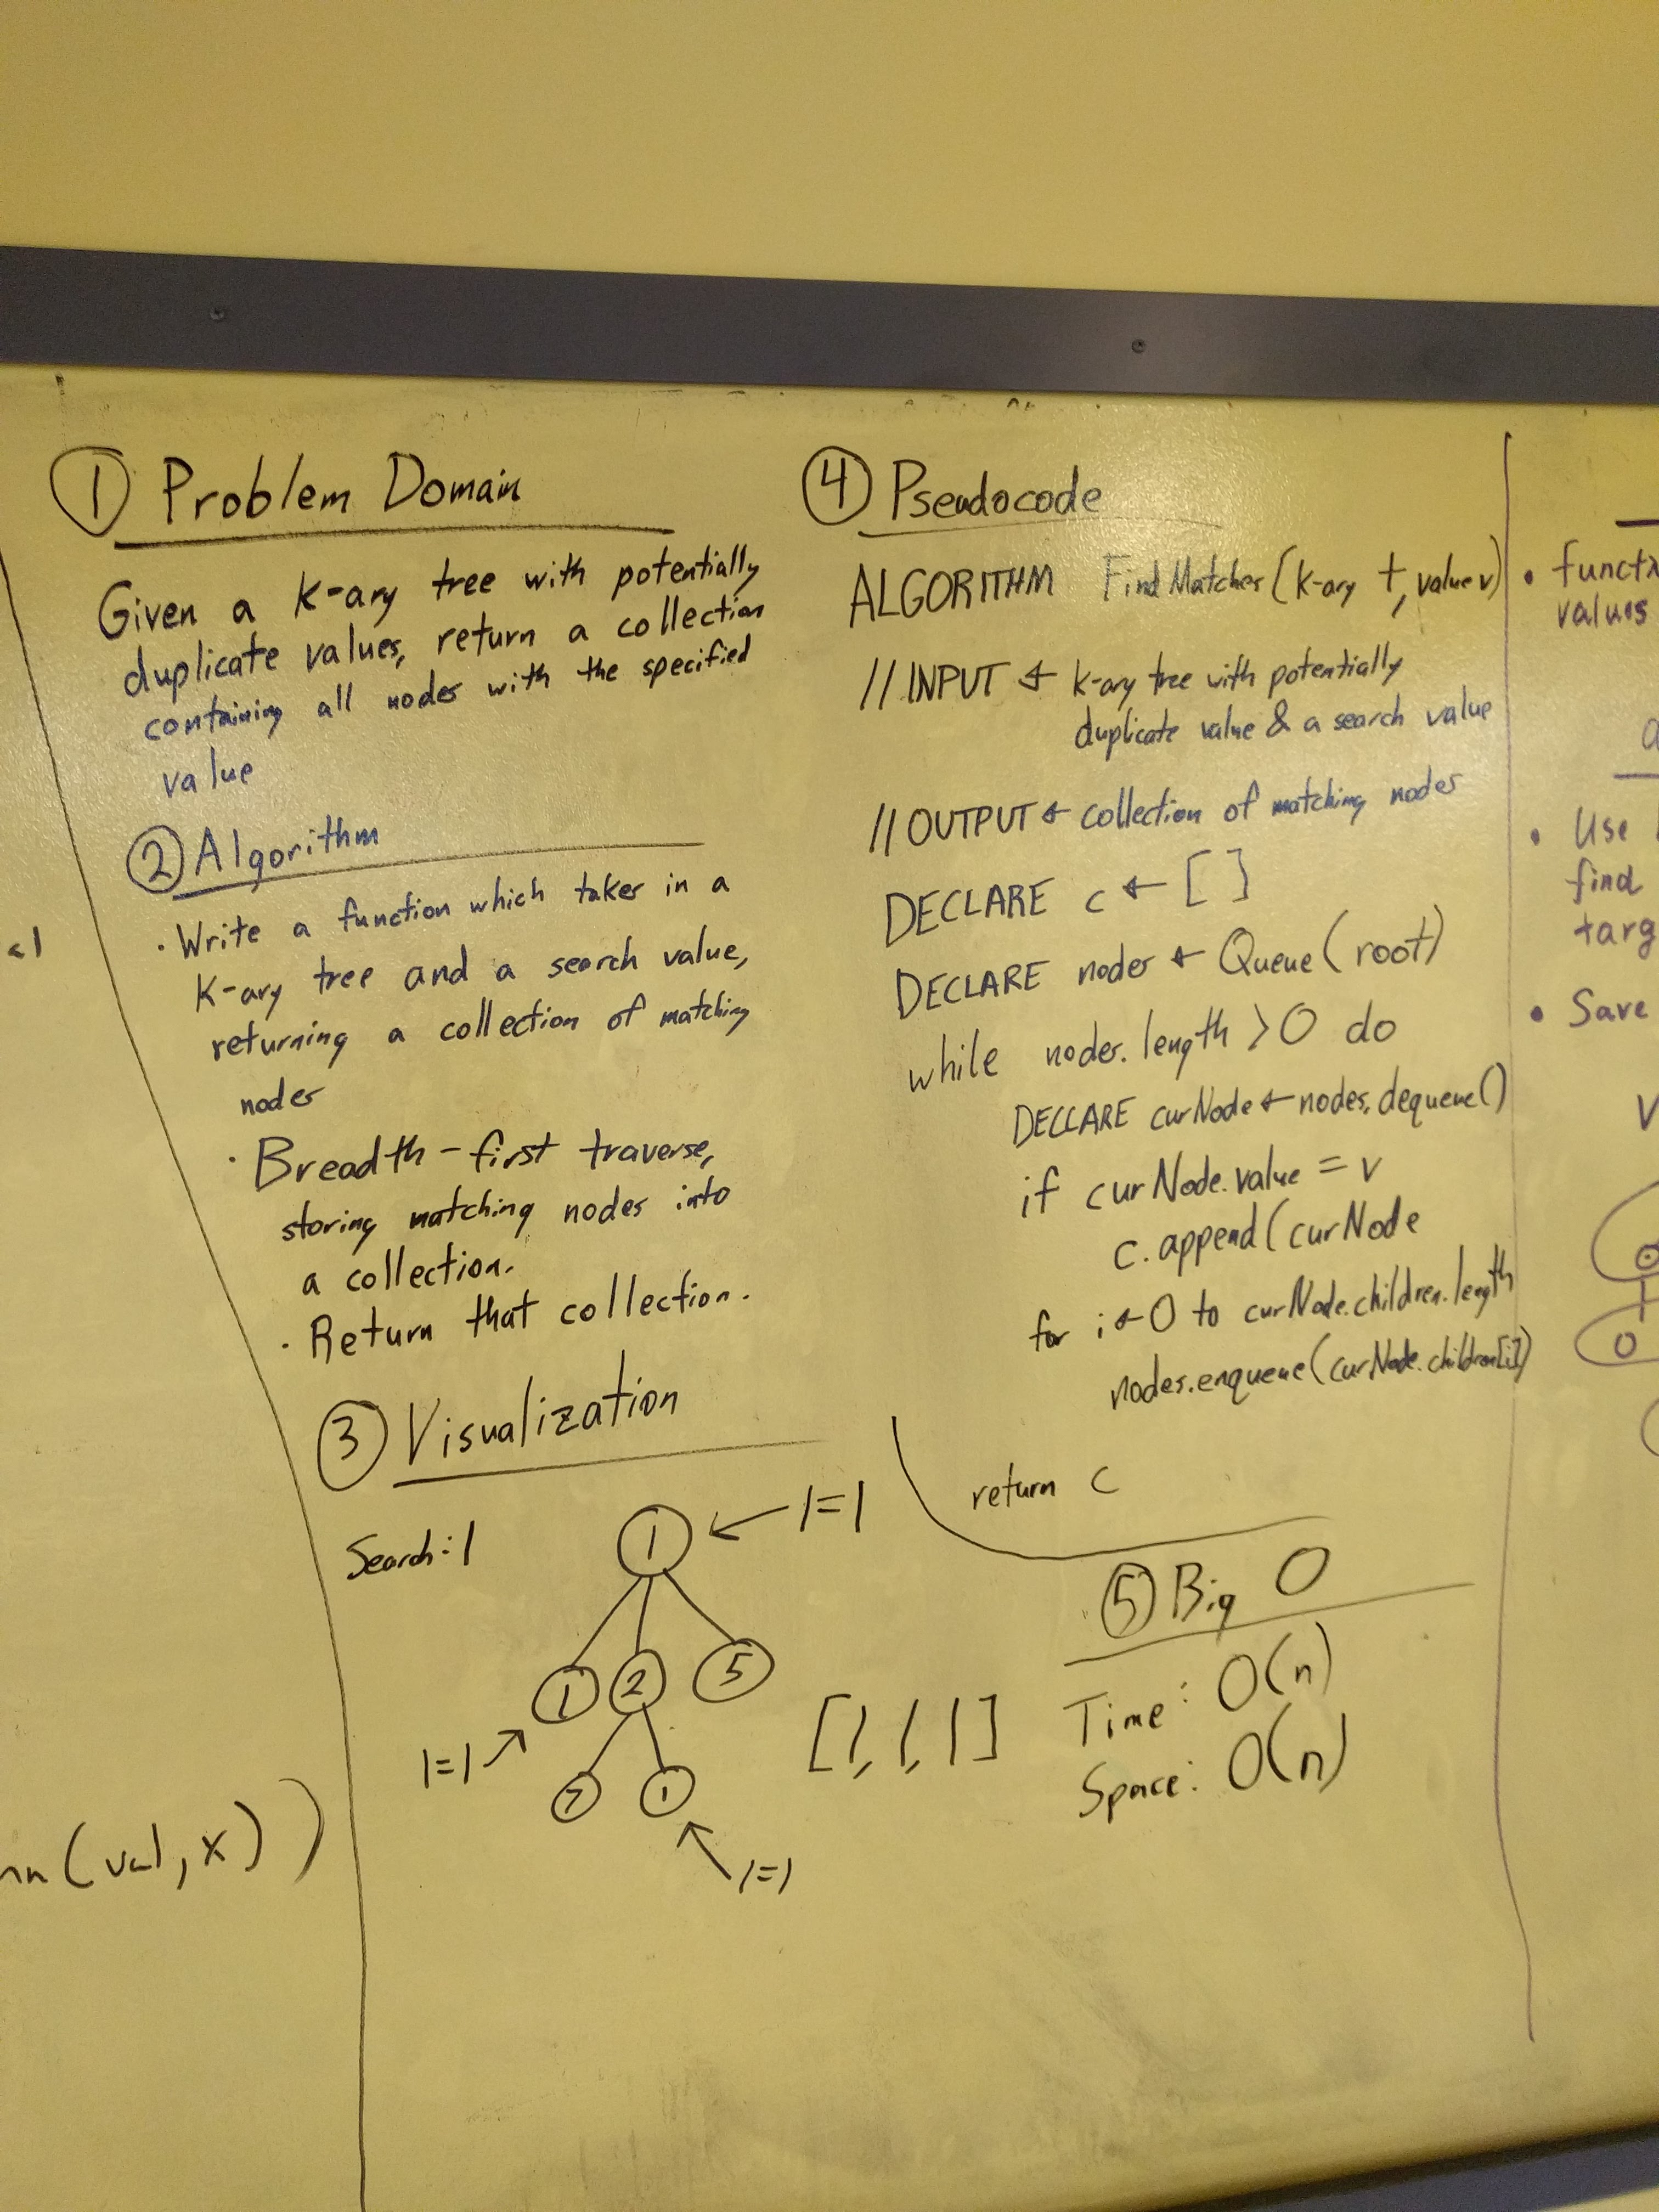 ① Problem Domain
Given a k-ary tree with potentially
duplicate values, return a collection
containing all nodes with the specified
value
② Algorithm
· Write a function which takes in a
k-ary tree and a search value,
returning a collection of matching
nodes
· Breadth-first traverse,
storing matching nodes into
a collection.
· Return that collection.
③ Visualization
Search: 1
1
1=1
1 2 5
1=1
7 1
1=1
[1, 1, 1]
④ Pseudocode
ALGORITHM FindMatches(k-ary t, value v)
// INPUT ← k-ary tree with potentially
duplicate value & a search value
// OUTPUT ← collection of matching nodes
DECLARE c ← [ ]
DECLARE nodes ← Queue(root)
while nodes.length > 0 do
DECLARE curNode ← nodes.dequeue()
if curNode.value = v
c.append(curNode
for i ← 0 to curNode.children.length
nodes.enqueue(curNode.children[i])
return c
⑤ Big O
Time: O(n)
Space: O(n)
<1
(val, x))
• functi
values
a
• Use
find
targ
• Save
V
0